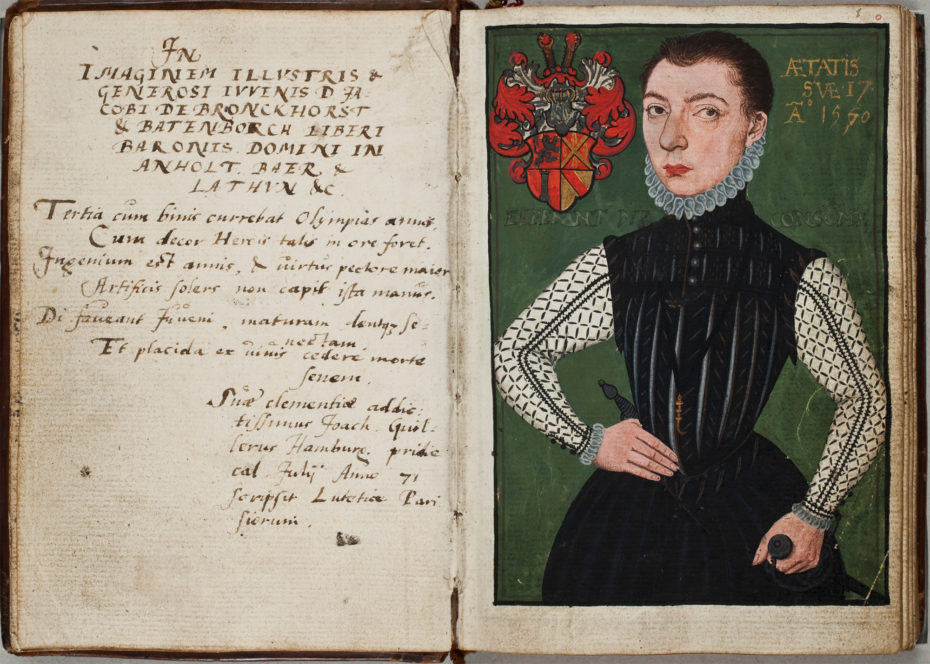 IN
IMAGINEM ILLVSTRIS &
GENEROSI IVVENIS D. IA-
COBI DE BRONCKHORST
& BATENBORCH LIBERI
BARONIS. DOMINI IN
ANHOLT. BAER &
LATHVN &c.
Tertia cum binis currebat Olympias annis,
Cum decor Herois talis in ore foret.
Ingenium est annis, & virtus pectore maior
Artificis solers non capit ista manus.
Di faveant Iuveni, maturam dentq; se-
nectam
Et placida ex vivis cedere morte
senem.
Suæ clementiæ addic-
tissimus Joach. Guil-
lerus Hamburg. pridie
cal. Julij Anno 71
scripsit Lutetiæ Pari
siorum.
8
ÆTATIS
SVÆ 17
Aº 1570